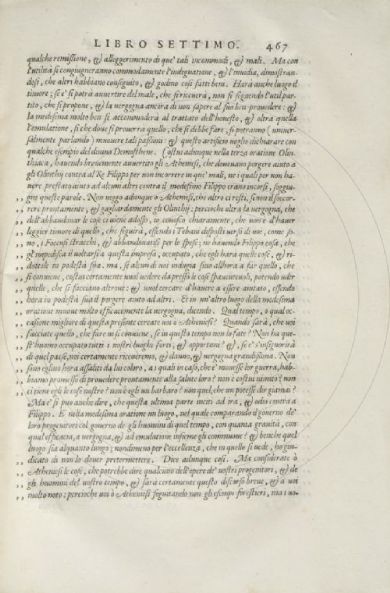 LIBRO SETTIMO. 467
qualche remissione, & alleggerimento di que' tali incommodi, & mali. Ma con
l'utilità si congiugneranno commodamente l'indegnatione, & l'invidia, dimostran-
dosi, che altri habbiano conseguito, & godino cosi fatti beni. Harà anche luogo il
timore; se e' si potrà avvertire del male, che seguirà, non si seguendo l'util par-
tito, che si propone, & la vergogna ancora di non sapere al suo ben provedere: &
la medesima molto ben si accommoderà al trattato dell'honesto, & oltra quella
l'emulatione, si che dove si proverrà quello, che si debbe fare, si potranno (univer-
salmente parlando) muovere tai passioni: & questo artificio meglio dichiarare con
qualche esempio del divino Demosthene. Costui adunque nella terza oratione Olin-
thiaca, havendo brevemente avvertito gli Atheniesi, che devevano porgere aiuto a
gli Olinthij contra al Re Filippo per non incorrere in que' mali, ne i quali per non ha-
vere prestato aiuto ad alcuni altri contra il medesimo Filippo erano incorsi, soggiu-
gne queste parole. Non niego adunque ò Atheniesi, che
rere prontamente, & gagliardamente gli Olinthij: percioche altra la vergogna, che
dell'abbandonar le cose ci viene adosso, io conosco chiaramente, che non è d'haver
leggier timore di quello, che seguirà, essendo i Thebani disposti verso di voi, come so-
no, i Focensi stracchi, & abbandonati per le spese; ne havendo Filippo cosa, che
gl'impedisca il voltarsi a questa impresa, occupato, che egli harà quelle cose, & ri-
dottele in podestà sua. ma, se alcun di voi indugia sino allhora a far quello, che
si conviene, costui certamente vuol vedere da presso le cose spaventevoli, potendo udir
quelle, che si facciano altrove: & vuol cercare d'havere a essere aiutato, essendo
hora in podestà sua il porgere aiuto ad altri. Et in un'altro luogo della medesima
oratione muove molto efficacemente la vergogna, dicendo. Qual tempo, o qual oc-
casione migliore di questa presente cercate voi ò Atheniesi? Quando sarà, che voi
facciate quello, che fare vi si conviene, se in questo tempo non lo fate? Non vede-
di quel paese, noi certamente riceviremo, & danno, & vergogna grandissima. Non
sono eglino hora assaliti da lui coloro, a i quali in caso, che e' movesse lor guerra, hab-
biamo promesso di provedere prontamente alla salute loro? non è costui nimico? non
ci tiene egli le cose nostre? non è egli un barbaro? non quel, che un potesse dir giamai?
Ma e' si puo anche dire, che questa ultima parte miri ad ira, & odio contra a
Filippo. E nella medesima oratione in un luogo, nel quale comparando il governo de'
loro progenitori col governo de gli huomini di quel tempo, con quanta gravità, con
qual efficacia, a vergogna, & ad emulatione insieme gli commuove? & benche quel
luogo sia alquanto lungo; nondimeno per l'eccellenza, che in quello si vede, ho giu-
dicato di non lo dover pretermettere. Dice adunque cosi. Ma considerate ò
Atheniesi le cose, che potrebbe dire qualcuno dell'opere de' vostri progenitori, & de
gli huomini del vostro tempo, & sarà certamente questo discorso breve, & a voi
molto noto: percioche voi ò Atheniesi seguitando non gli esempi forestieri, ma i no-